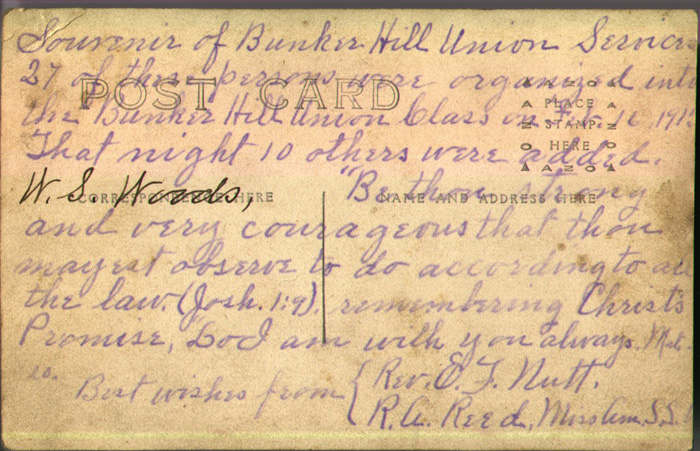 Souvenir of Bunker Hill Union Services
27 of these persons were organized into
POST CARD
the Bunker Hill Union Class on Feb. 16, 191
PLACE
STAMP
HERE
That night 10 others were added.
W. S. Woods, "Be thou strong
CORRESPONDENCE HERE
NAME AND ADDRESS HERE
and very courageous that thou
mayest observe to do according to al
the law. (Josh. 1:9). remembering Christ's
Promise, Lo I am with you always. Mat-
Best wishes from { Rev. E. F. Nutt.
R. A. Reed, Am. S.S.